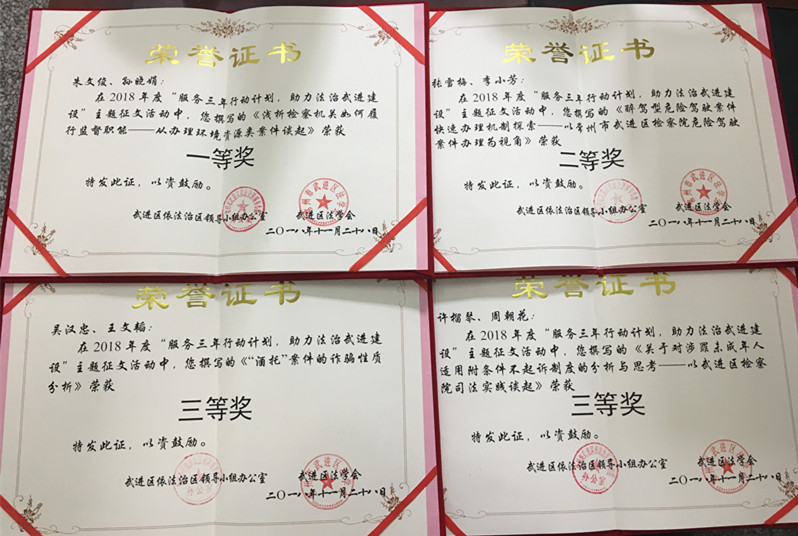 荣誉证书
朱文俊、孙晓娟：
在2018年度“服务三年行动计划，助力法治武进建
设”主题征文活动中，您撰写的《浅析检察机关如何履
行监督职能——从办理环境资源类案件谈起》荣获
一等奖
特发此证，以资鼓励。
武进区依法治区领导小组办公室 武进区法学会
二〇一八年十一月二十八日
荣誉证书
张雪梅、李小芳：
在2018年度“服务三年行动计划，助力法治武进建
设”主题征文活动中，您撰写的《醉驾型危险驾驶案件
快速办理机制探索——以常州市武进区检察院危险驾驶
案件办理为视角》荣获
二等奖
特发此证，以资鼓励。
武进区依法治区领导小组办公室 武进区法学会
二〇一八年十一月二十八日
荣誉证书
吴汉忠、王文韬：
在2018年度“服务三年行动计划，助力法治武进建
设”主题征文活动中，您撰写的《“酒托”案件的诈骗性质
分析》荣获
三等奖
特发此证，以资鼓励。
武进区依法治区领导小组办公室 武进区法学会
二〇一八年十一月二十八日
荣誉证书
许榴琴、周朝花：
在2018年度“服务三年行动计划，助力法治武进建
设”主题征文活动中，您撰写的《关于对涉罪未成年人
适用附条件不起诉制度的分析与思考——以武进区检察
院司法实践谈起》荣获
三等奖
特发此证，以资鼓励。
武进区依法治区领导小组办公室 武进区法学会
二〇一八年十一月二十八日